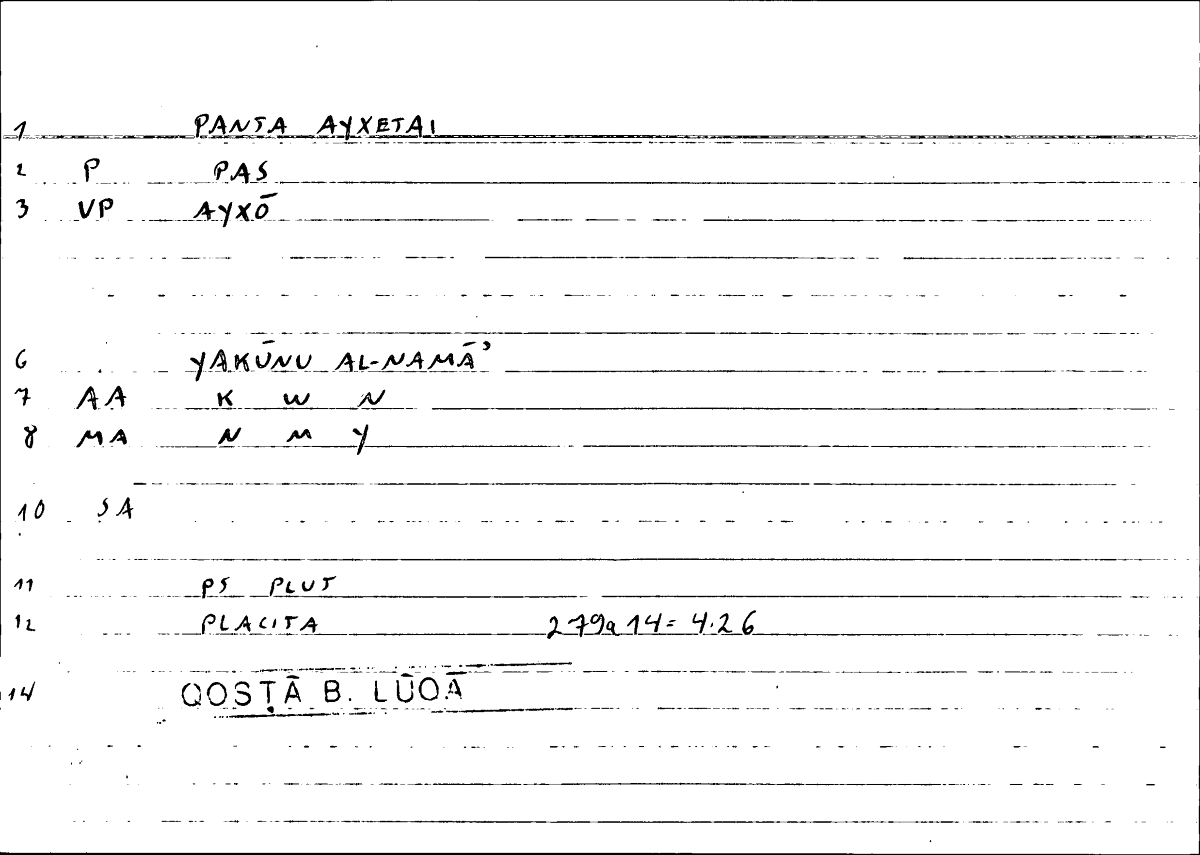 1 PANTA AYXETAI
2 P PAS
3 VP AYXŌ
6 YAKŪNU AL-NAMĀʾ
7 AA K W N
8 MA N M Y
10 SA
11 PS PLUT
12 PLACITA 279a14= 4.26
14 QOSṬĀ B. LŪQĀ